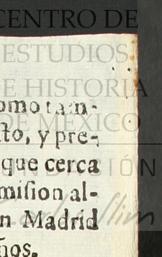 CENTRO DE
ESTUDIOS
DE HISTORIA
omo tam-
DE MÉXICO
to, y pre-
que cerca
mision al-
n Madrid
ños.